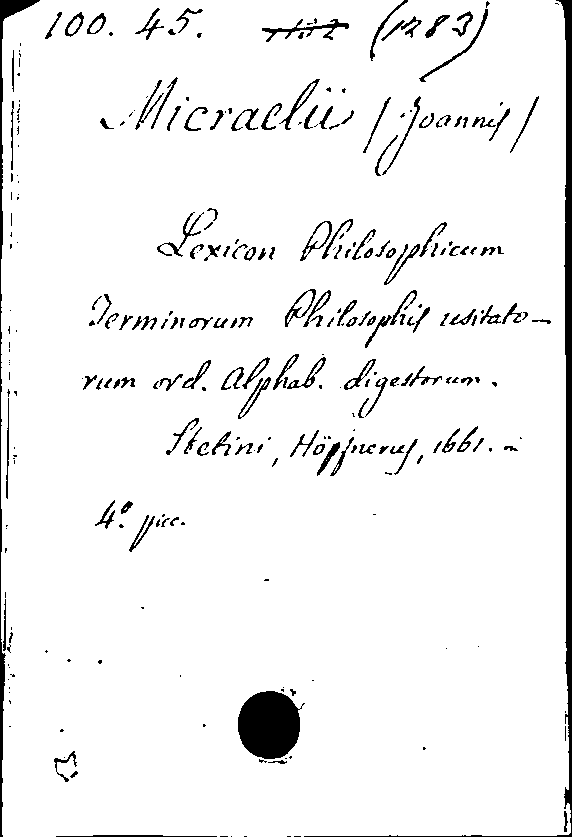 100. 45. (1283)
Micraelii (Joannis)
Lexicon Philosophicum
Terminorum Philosophis usitato-
rum ord. Alphab. digestorum.
Stetini, Höpfnerus, 1661. in
4.º picc.